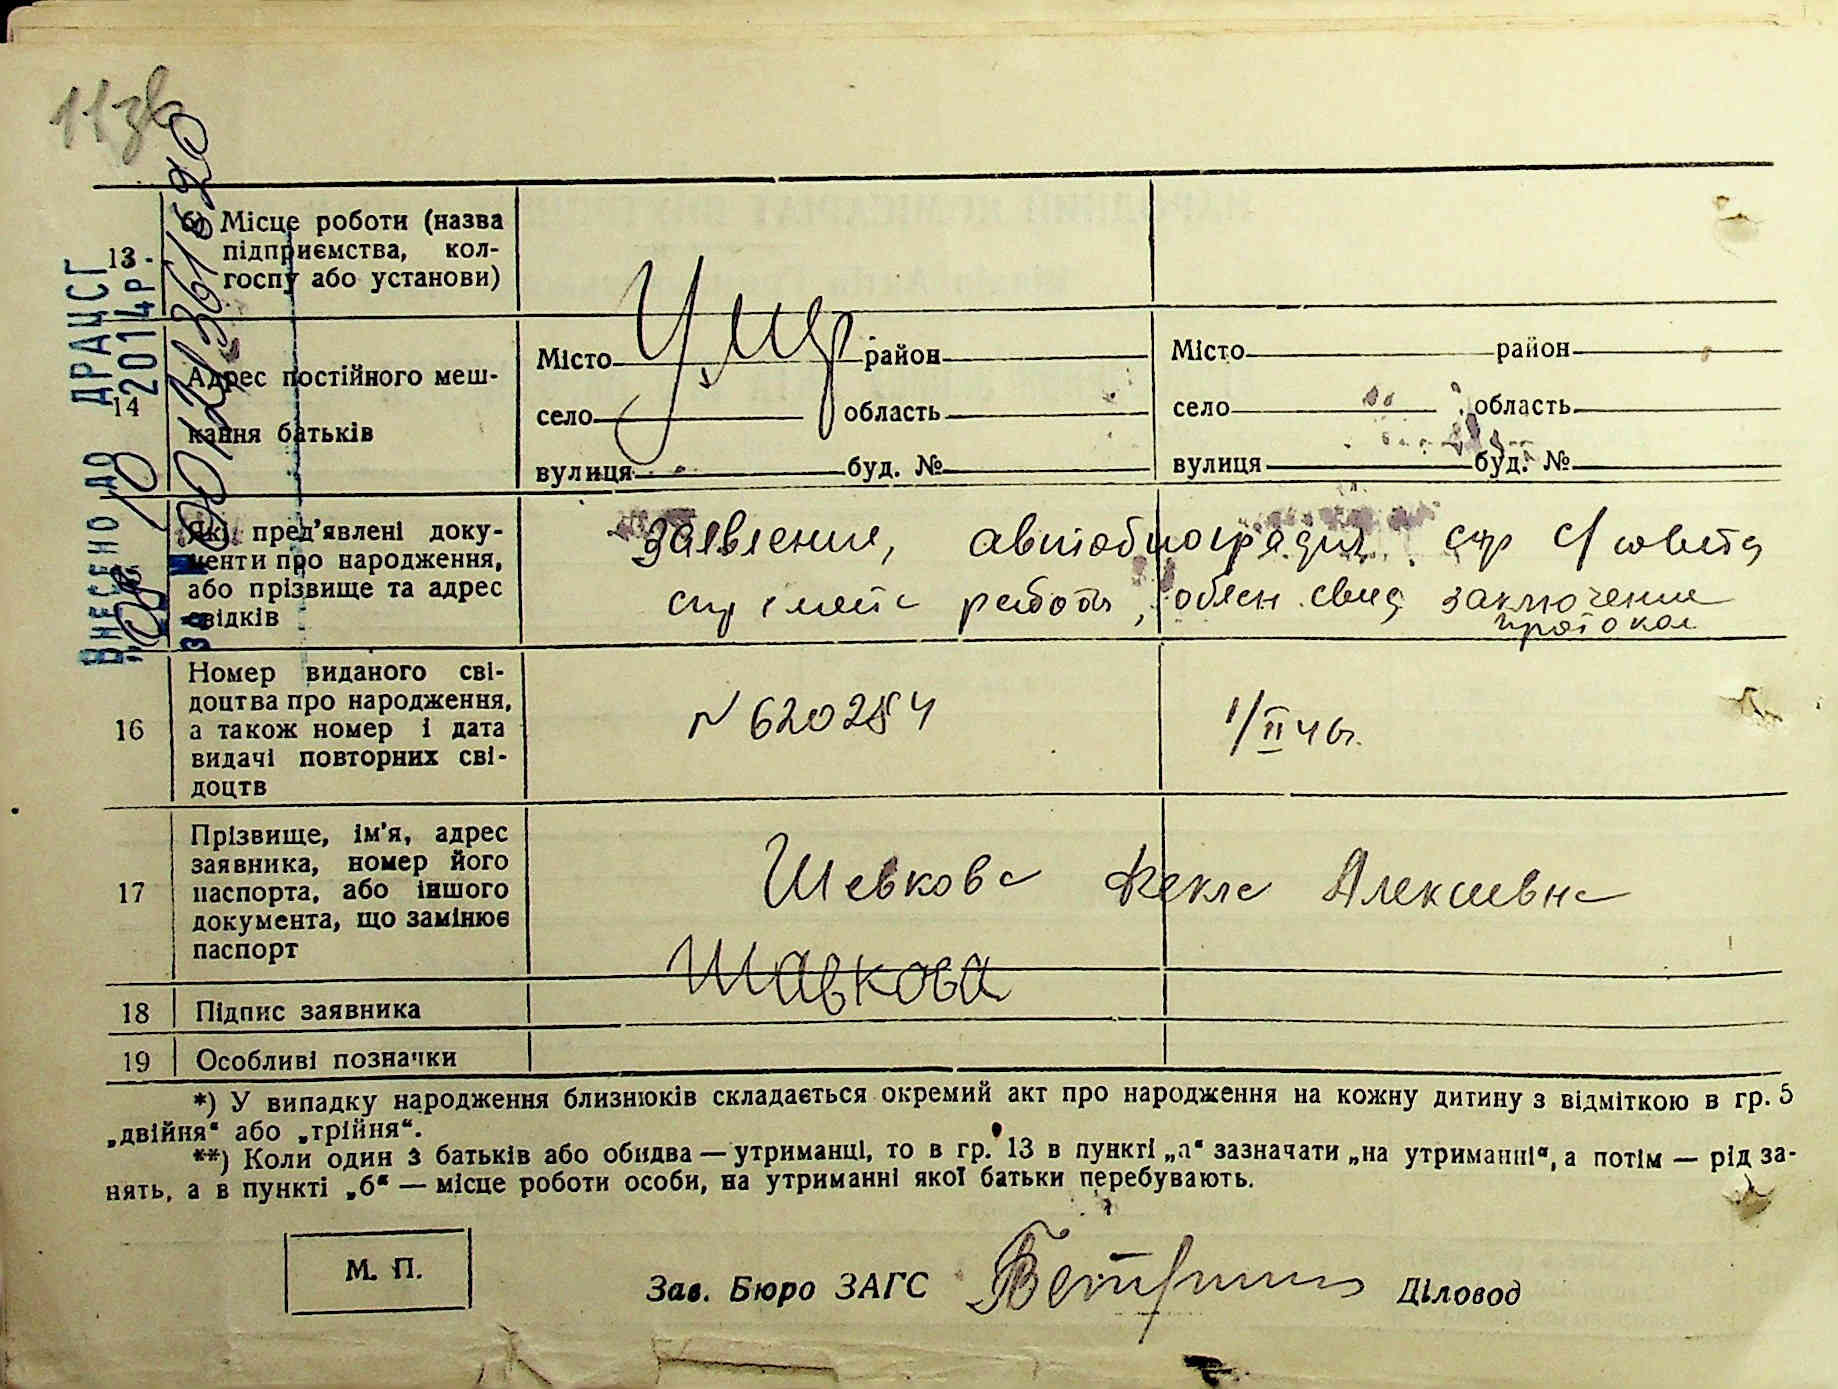 11зв
ВНЕСЕНО ДО ДРАЦСГ
"08" 10 2014р.
за № 00121361620
13
б) Місце роботи (назва
підприємства, кол-
госпу або установи)
14
Адрес постійного меш-
кання батьків
Місто район
село область
вулиця буд. №
Умер
Місто район
село область
вулиця буд. №
Які пред'явлені доку-
менти про народження,
або прізвище та адрес
свідків
заявление, автобиография спр с/совета
спр с места работы, объясн. свид заключение
протокол
16
Номер виданого сві-
доцтва про народження,
а також номер і дата
видачі повторних сві-
доцтв
N 620284
1/II 46г.
17
Прізвище, ім'я, адрес
заявника, номер його
паспорта, або іншого
документа, що замінює
паспорт
Шевкова Фекла Алексеевна
18
Підпис заявника
Шавкова
19
Особливі позначки
*) У випадку народження близнюків складається окремий акт про народження на кожну дитину з відміткою в гр. 5
„двійня“ або „трійня“.
**) Коли один з батьків або обидва — утриманці, то в гр. 13 в пункті „а“ зазначати „на утриманні“, а потім — рід за-
нять, а в пункті „б“ — місце роботи особи, на утриманні якої батьки перебувають.
М. П.
Зав. Бюро ЗАГС
Діловод